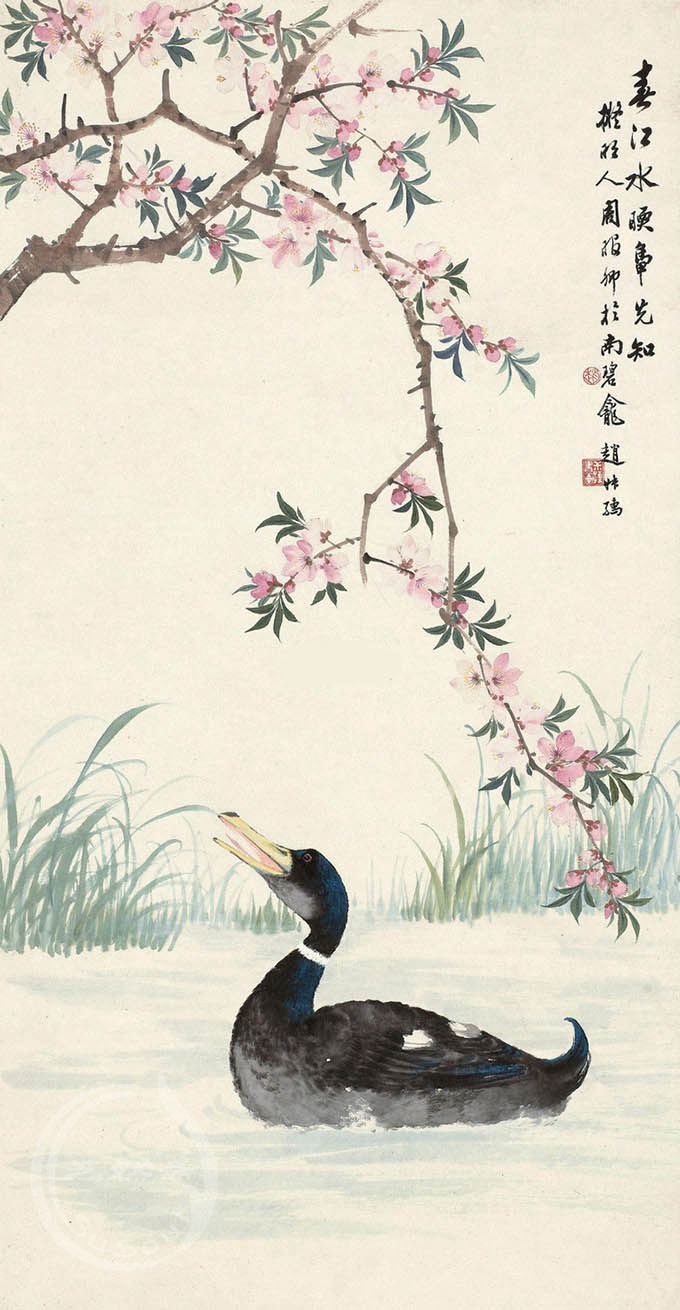 春江水暖鴨先知
擬明人周服卿於南碧龕 趙叔孺